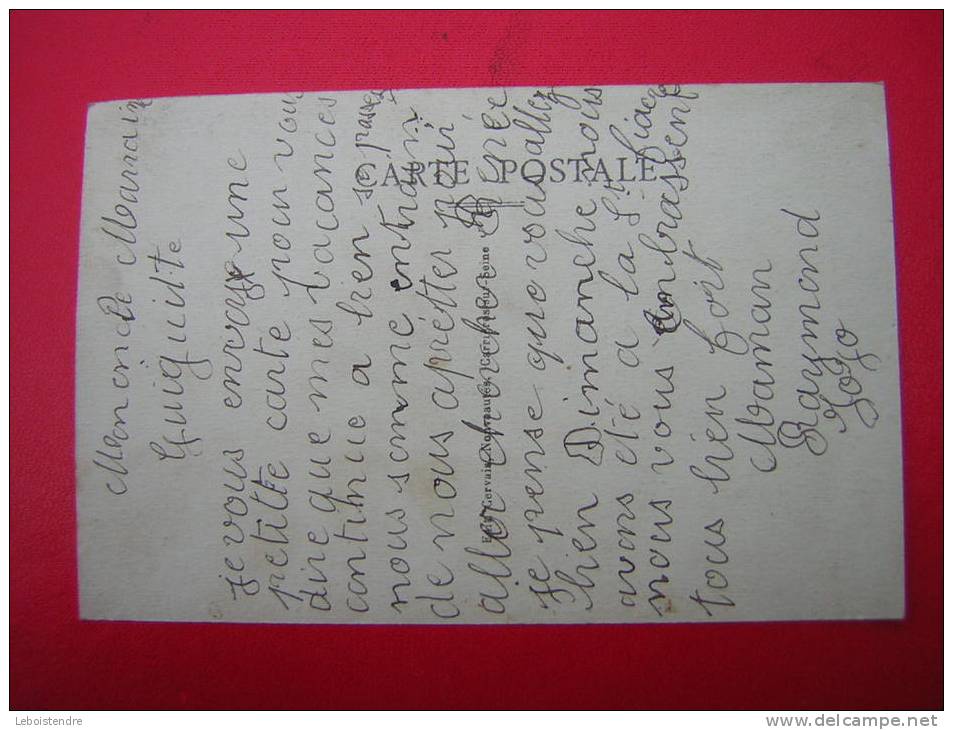 Marraine
Guiguitte
je vous envoye une
petitte carte pour vous
dire que mes vacances
continue a bien se passer
nous somme entrain
de nous aprétter pour
aller chercher Renée
je pense que vous allez
bien Dimanche nous
avons été a la St Fiacre
nous vous embrassent
tous bien fort
Maman
Raymond
Jojo
CARTE POSTALE
Edit. Gervais, Nouveautés, Carrières-sur-Seine
Leboistendre
www.delcampe.net